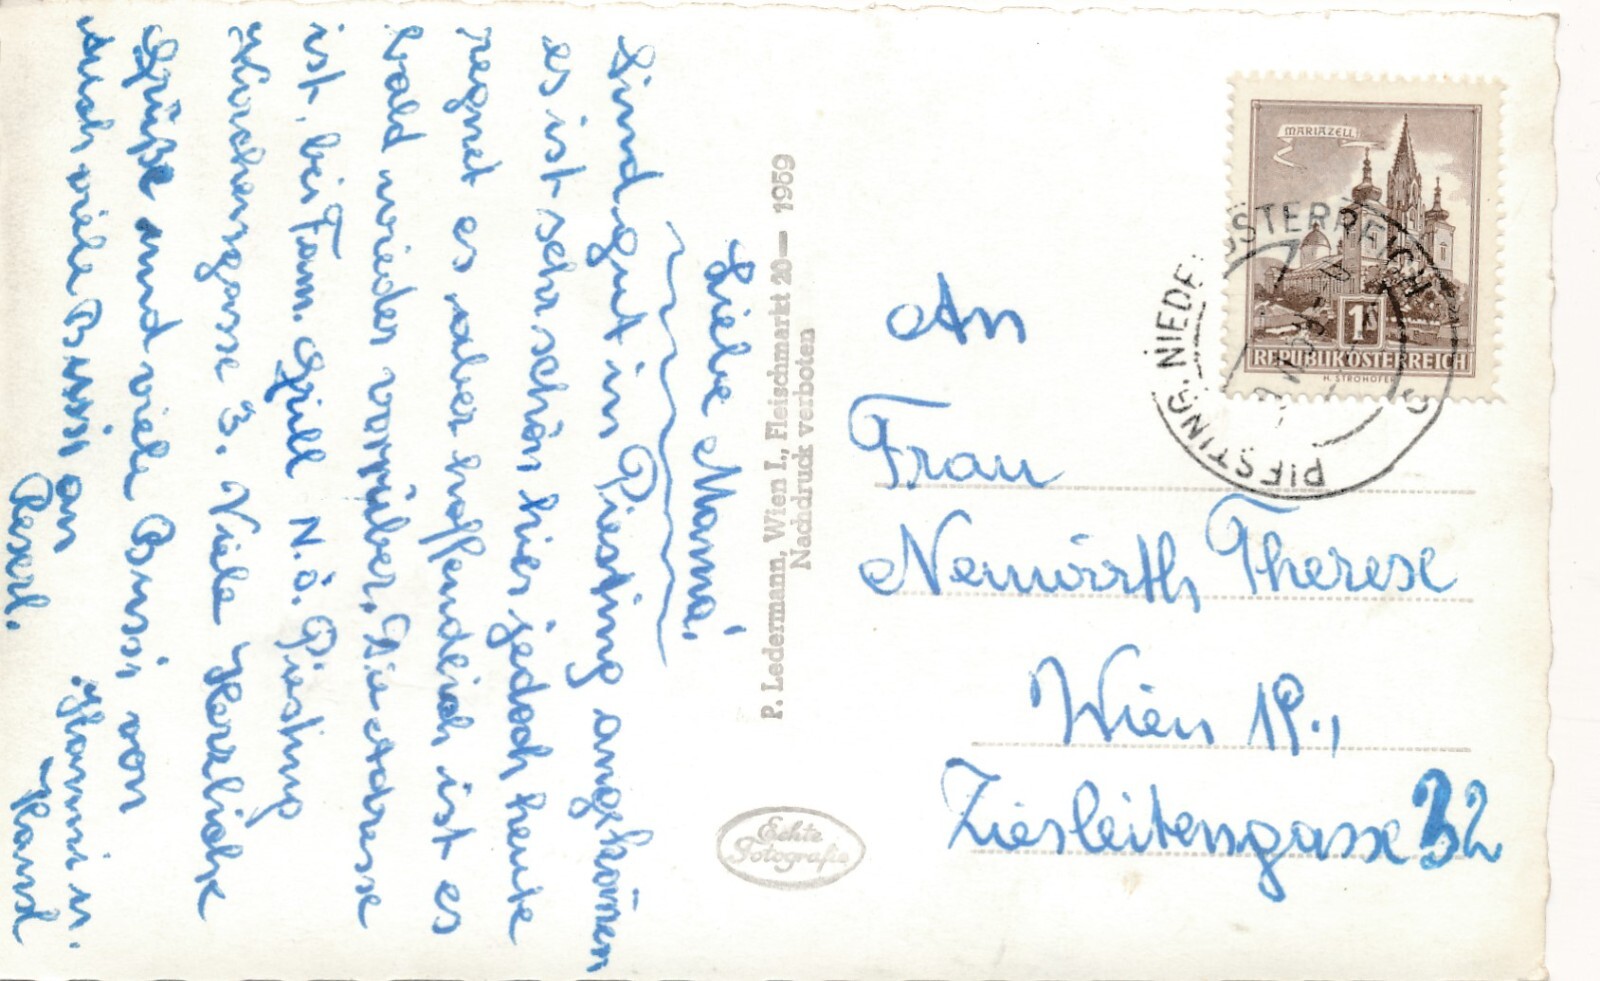 Liebe Mama,
Sind gut in Piesting angekom̅en
es ist sehr schön hier jedoch heute
regnet es aber hoffendlich ist es
bald wieder vorrüber. Die Adresse
ist, bei Fam. Grill N.Ö. Piesting
Kirchengasse 3. Viele Herzliche
Grüße und viele Bussi von
auch viele Bussi an
Reserl.
Hanni u.
P. Ledermann, Wien I., Fleischmarkt 20— 1959
Nachdruck verboten
Echte
Fotografie
MARIAZELL
1
REPUBLIK ÖSTERREICH
H. STROHOFER
PIESTING, NIEDERÖSTERREICH
An
Frau
Neuwirth Therese
Wien 19.,
Zierleitengasse 32